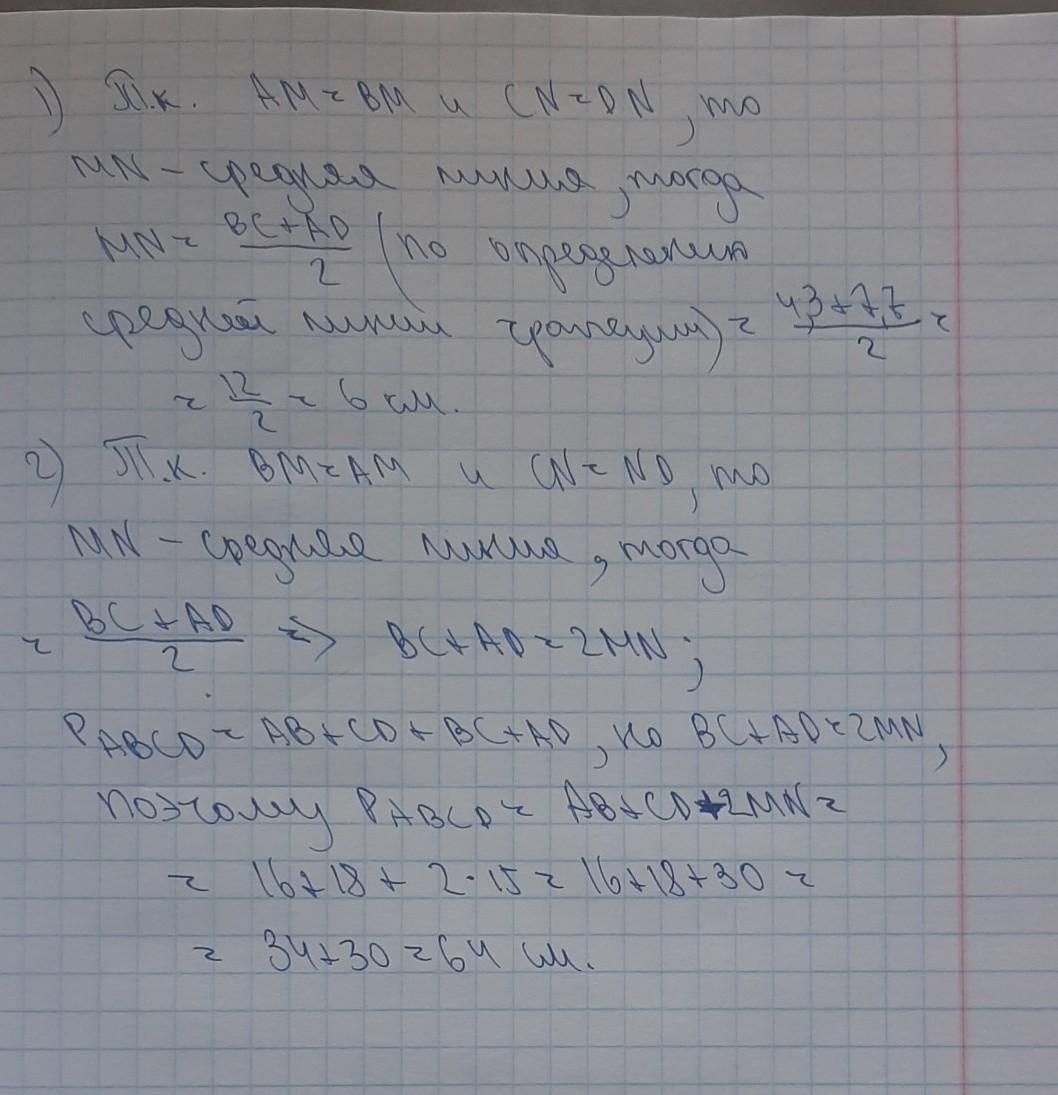 1) Т.к. AM=BM и CN=DN, то
MN - средняя линия, тогда
MN = \frac{BC+AD}{2} (по определению
средней линии трапеции) = \frac{4,3+7,7}{2} =
= \frac{12}{2} = 6 см.
2) Т.к. BM=AM и CN=ND, то
MN - средняя линия, тогда
= \frac{BC+AD}{2} => BC+AD=2MN;
P_{ABCD} = AB+CD+BC+AD, но BC+AD=2MN,
поэтому P_{ABCD} = AB+CD+2MN=
= 16+18+2·15=16+18+30=
= 34+30=64 см.